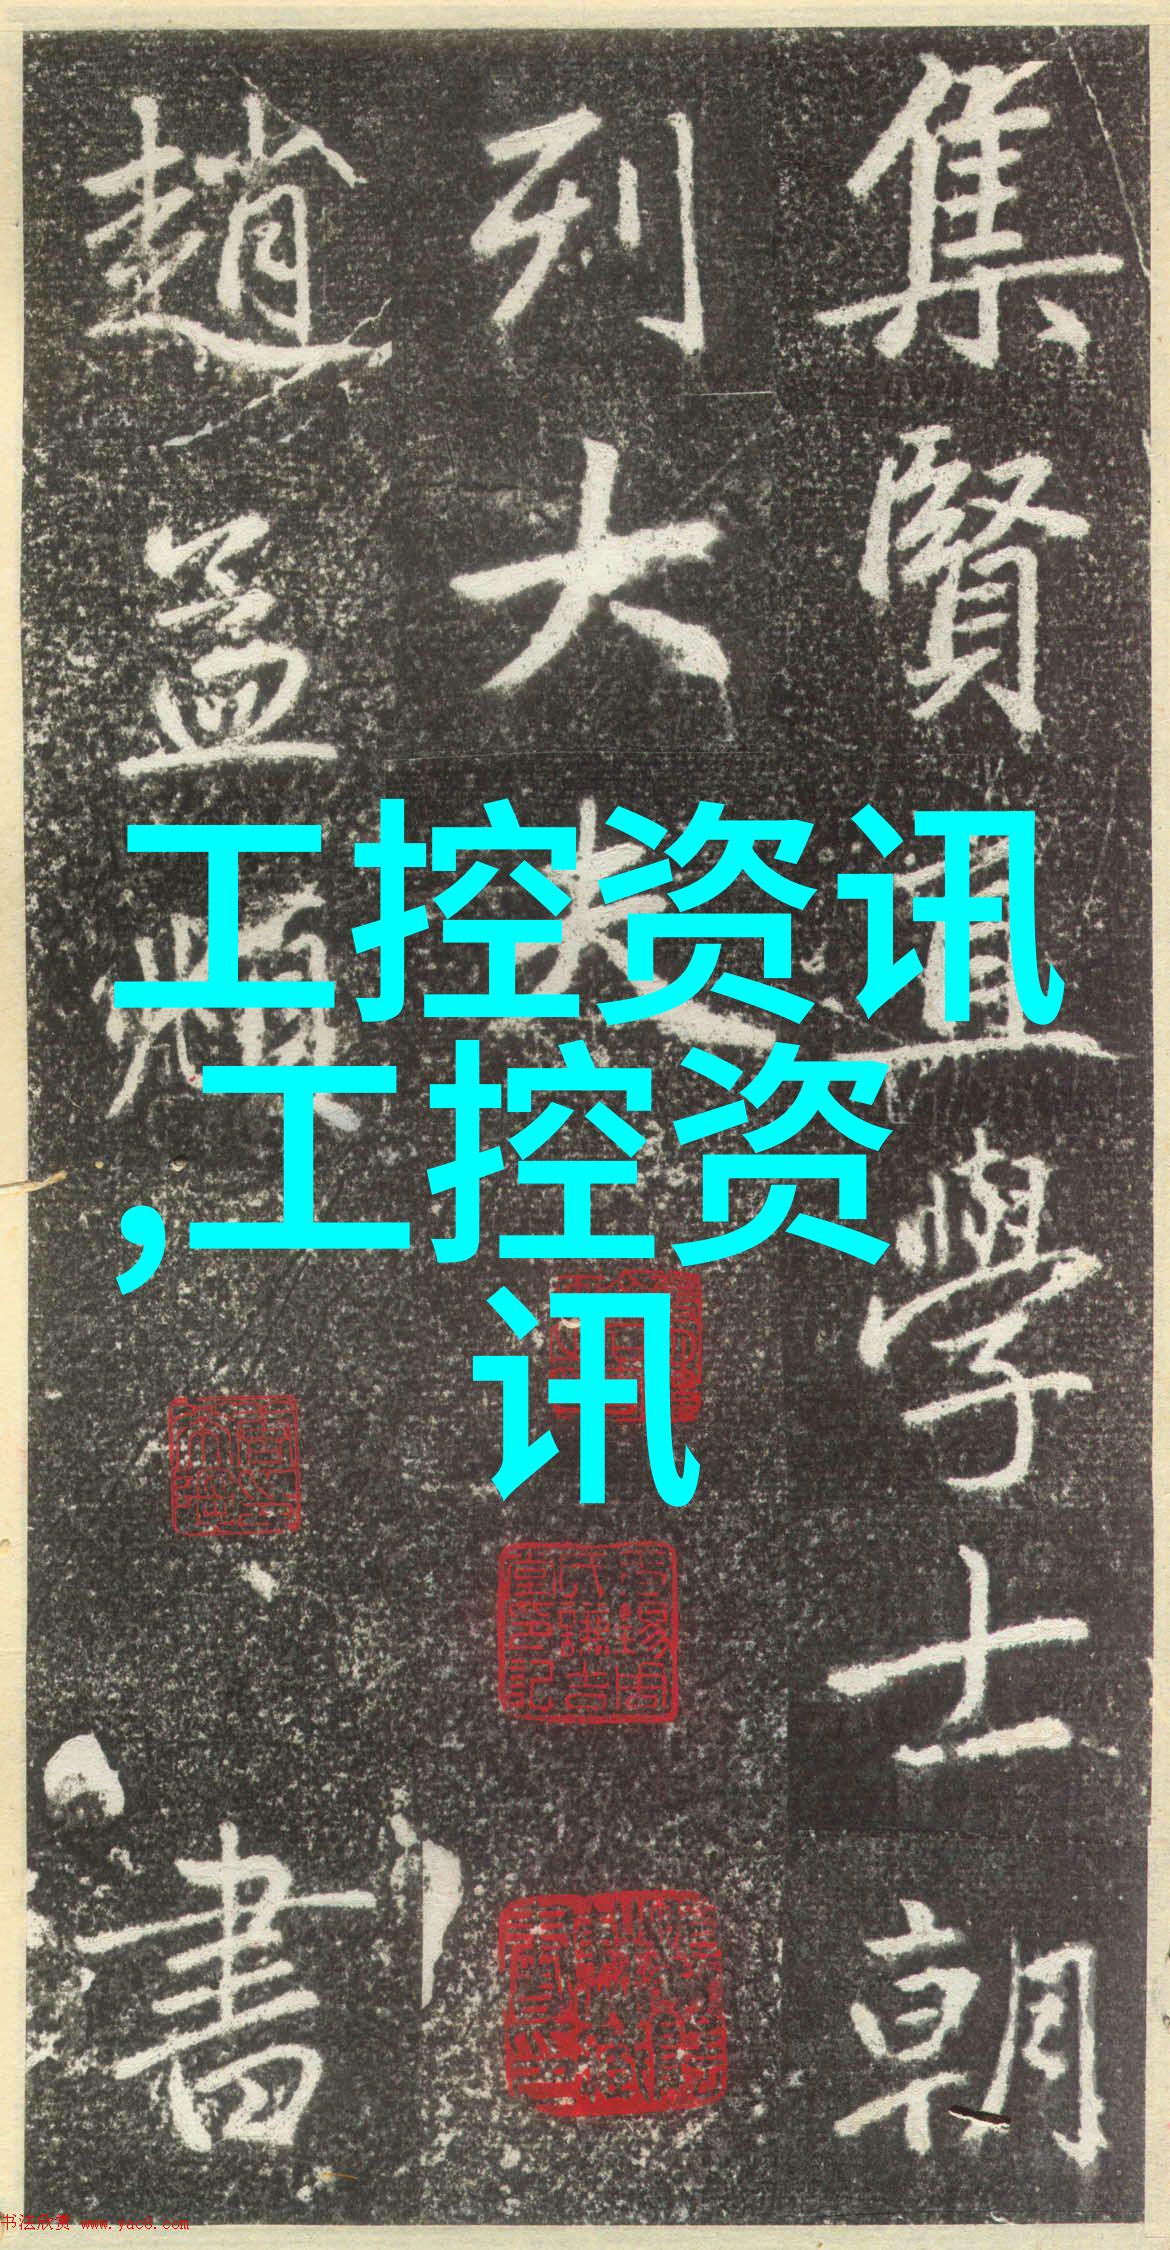 集賢直學士朝
列大夫
趙孟頫書
工控资讯
,工控资
讯
书法欣赏 www.yac8.com